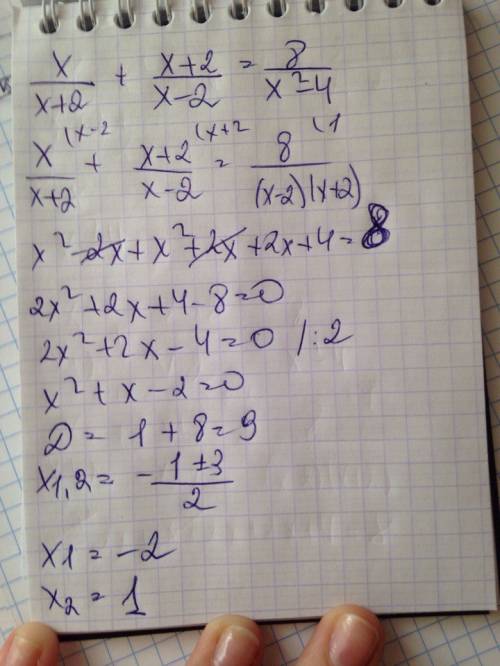 x/(x+2) + (x+2)/(x-2) = 8/(x²-4)
x/(x+2) (x-2 + (x+2)/(x-2) (x+2 = 8/((x-2)(x+2)) (1
x²-2x+x²+2x+2x+4=8
2x²+2x+4-8=0
2x²+2x-4=0 /:2
x²+x-2=0
D= 1+8=9
x1,2= -(1±3)/2
x1=-2
x2=1